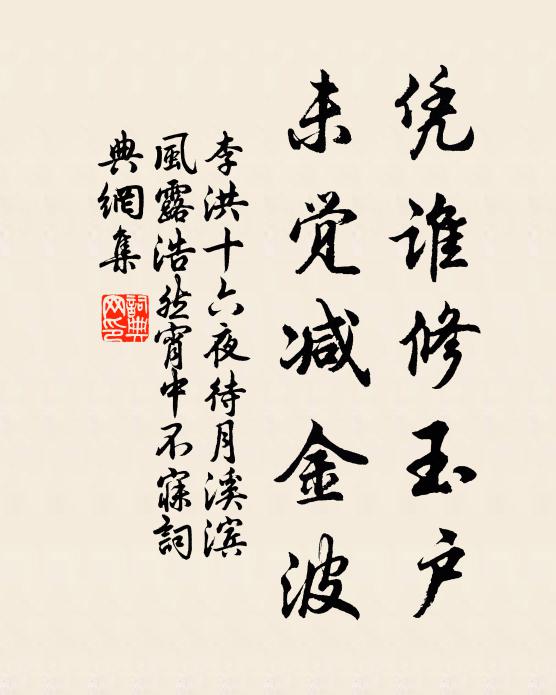 凭谁修玉户
未觉减金波
李洪十六夜待月溪滨
風露浩然宵中不寐詞
典網集
詞典网印